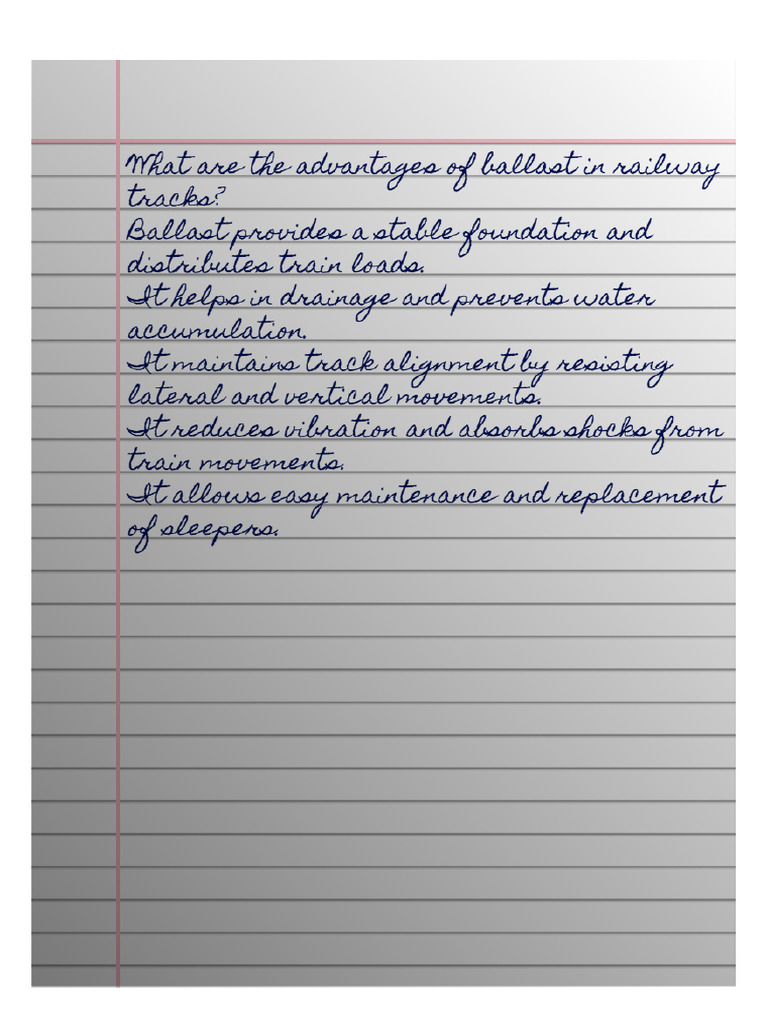 What are the advantages of ballast in railway
tracks?
Ballast provides a stable foundation and
distributes train loads.
It helps in drainage and prevents water
accumulation.
It maintains track alignment by resisting
lateral and vertical movements.
It reduces vibration and absorbs shocks from
train movements.
It allows easy maintenance and replacement
of sleepers.